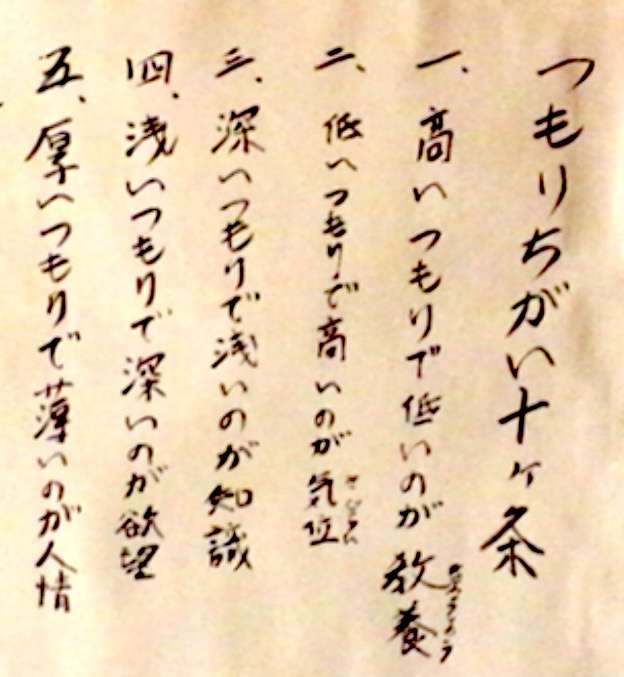 つもりちがい十ヶ条
一、高いつもりで低いのが教養
二、低いつもりで高いのが気位
三、深いつもりで浅いのが知識
四、浅いつもりで深いのが欲望
五、厚いつもりで薄いのが人情